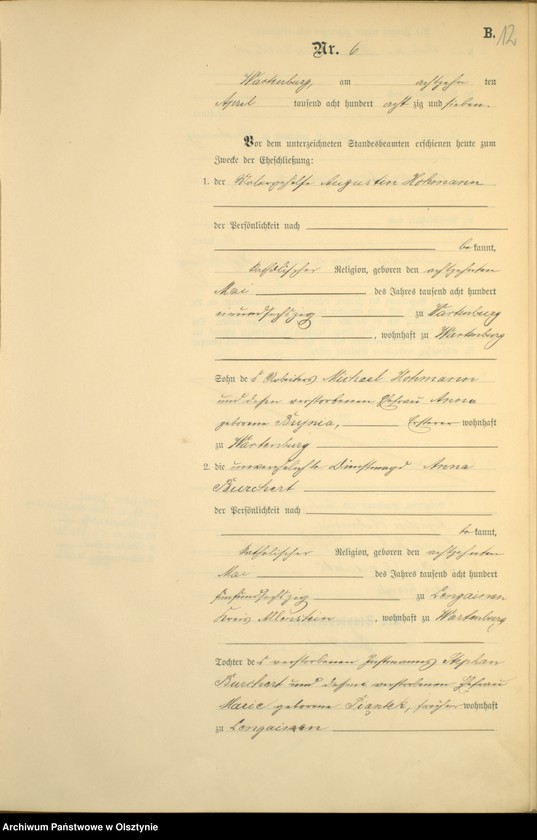 B.
12
Nr. 6
Wartenburg, am achtzehn ten
April tausend acht hundert acht zig und sieben.
Vor dem unterzeichneten Standesbeamten erschienen heute zum
Zwecke der Eheschließung:
1. der Malergehilfe Augustin Hohmann
der Persönlichkeit nach
be kannt,
katholischer Religion, geboren den achtzehnten
Mai des Jahres tausend acht hundert
neunundsechszig zu Wartenburg
, wohnhaft zu Wartenburg
Sohn des Arbeiters Michael Hohmann
und dessen verstorbenen Ehefrau Anna
geborene Ersterer wohnhaft
zu Wartenburg
2. die unverehelichte Dienstmagd Anna
Burchert
der Persönlichkeit nach
be kannt,
katholischer Religion, geboren den achtzehnten
Mai des Jahres tausend acht hundert
fünfundsechszig zu Lengainen
Kreis Allenstein, wohnhaft zu Wartenburg
Tochter des verstorbenen Instmanns Stephan
Burchert und dessen verstorbenen Ehefrau
Marie geborene früher wohnhaft
zu Lengainen
Archiwum Państwowe w Olsztynie